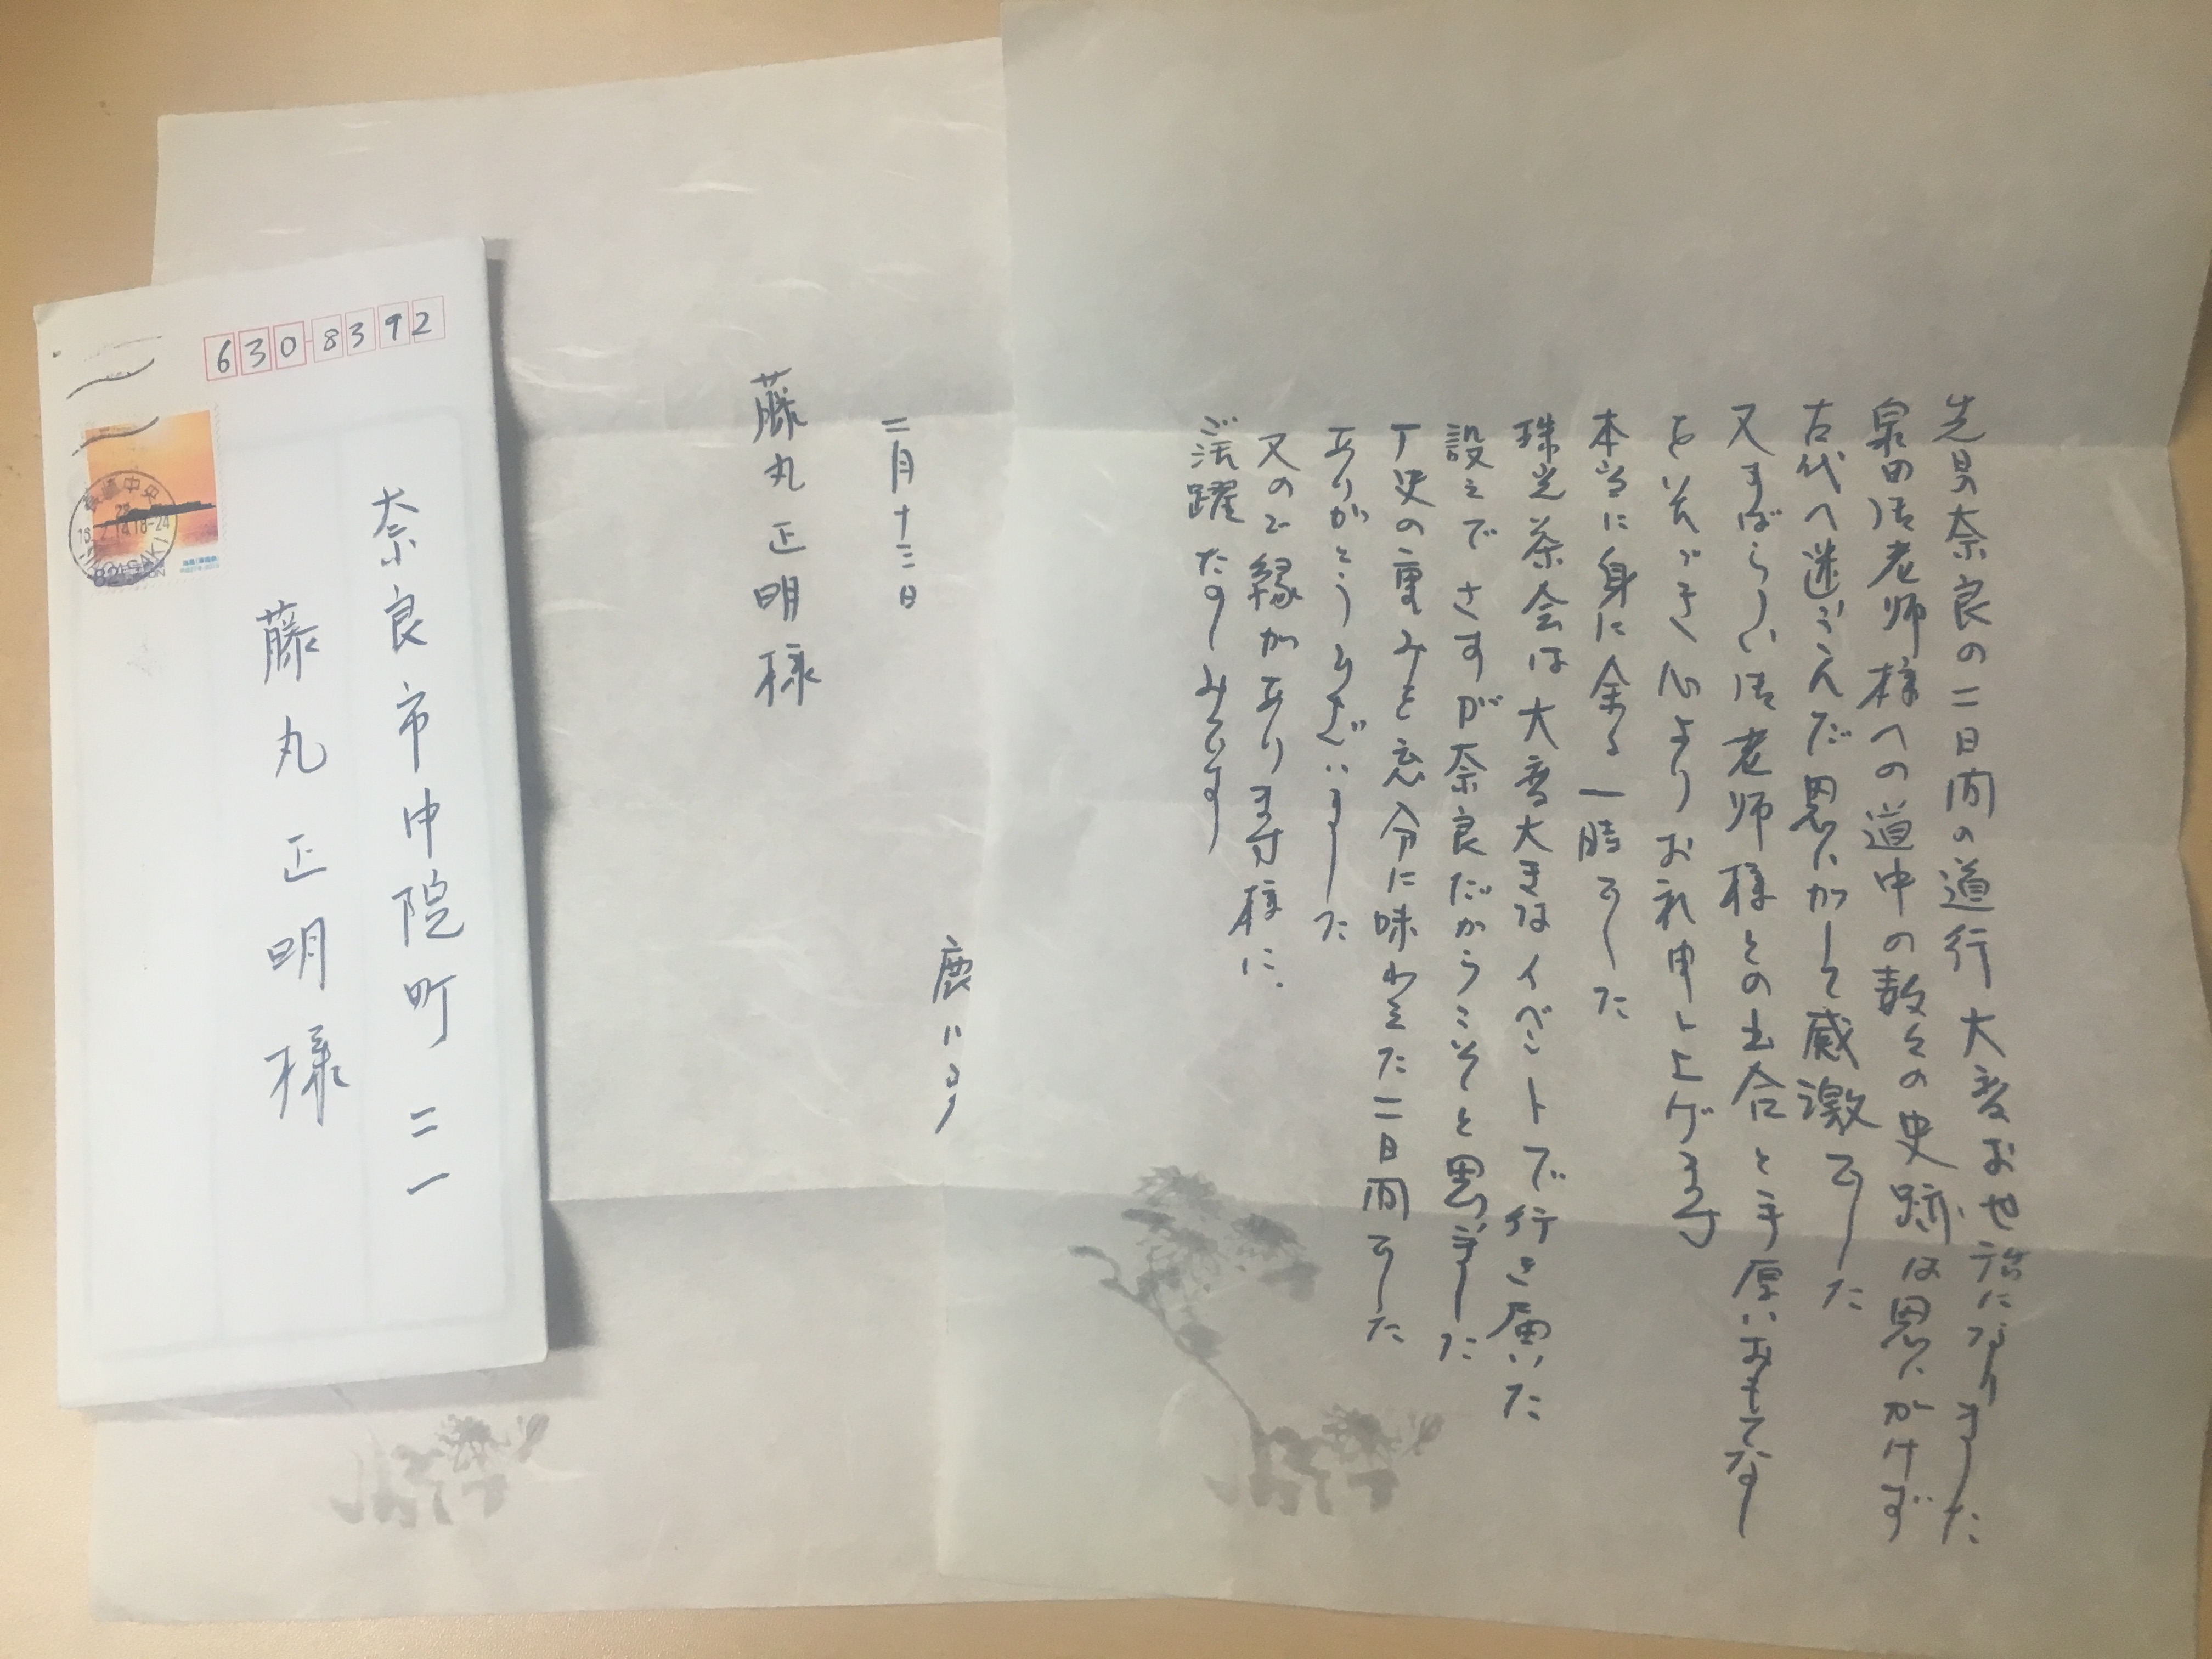 先日奈良の二日間の道行大変お世話になりました
泉田法老師様への道中の数々の史跡は思いがけず
古代へ迷いこんだ思いがして感激でした
又すばらしい法老師様との出合と手厚いおもてなし
を
心よりお礼申し上げます
本当に身に余る一時でした
珠光茶会は大変大きなイベントで行き届いた
設えでさすが奈良だからこそと思いました
丁史の重みを充分に味わえた二日間でした
ありがとうございました
又のご縁がありますように、
ご活躍たのしみです
二月十三日
鹿
藤丸正明様
630-8392
奈良市中院町二一
藤丸正明様
中央
18-24
NAGASAKI
82
NIPPON